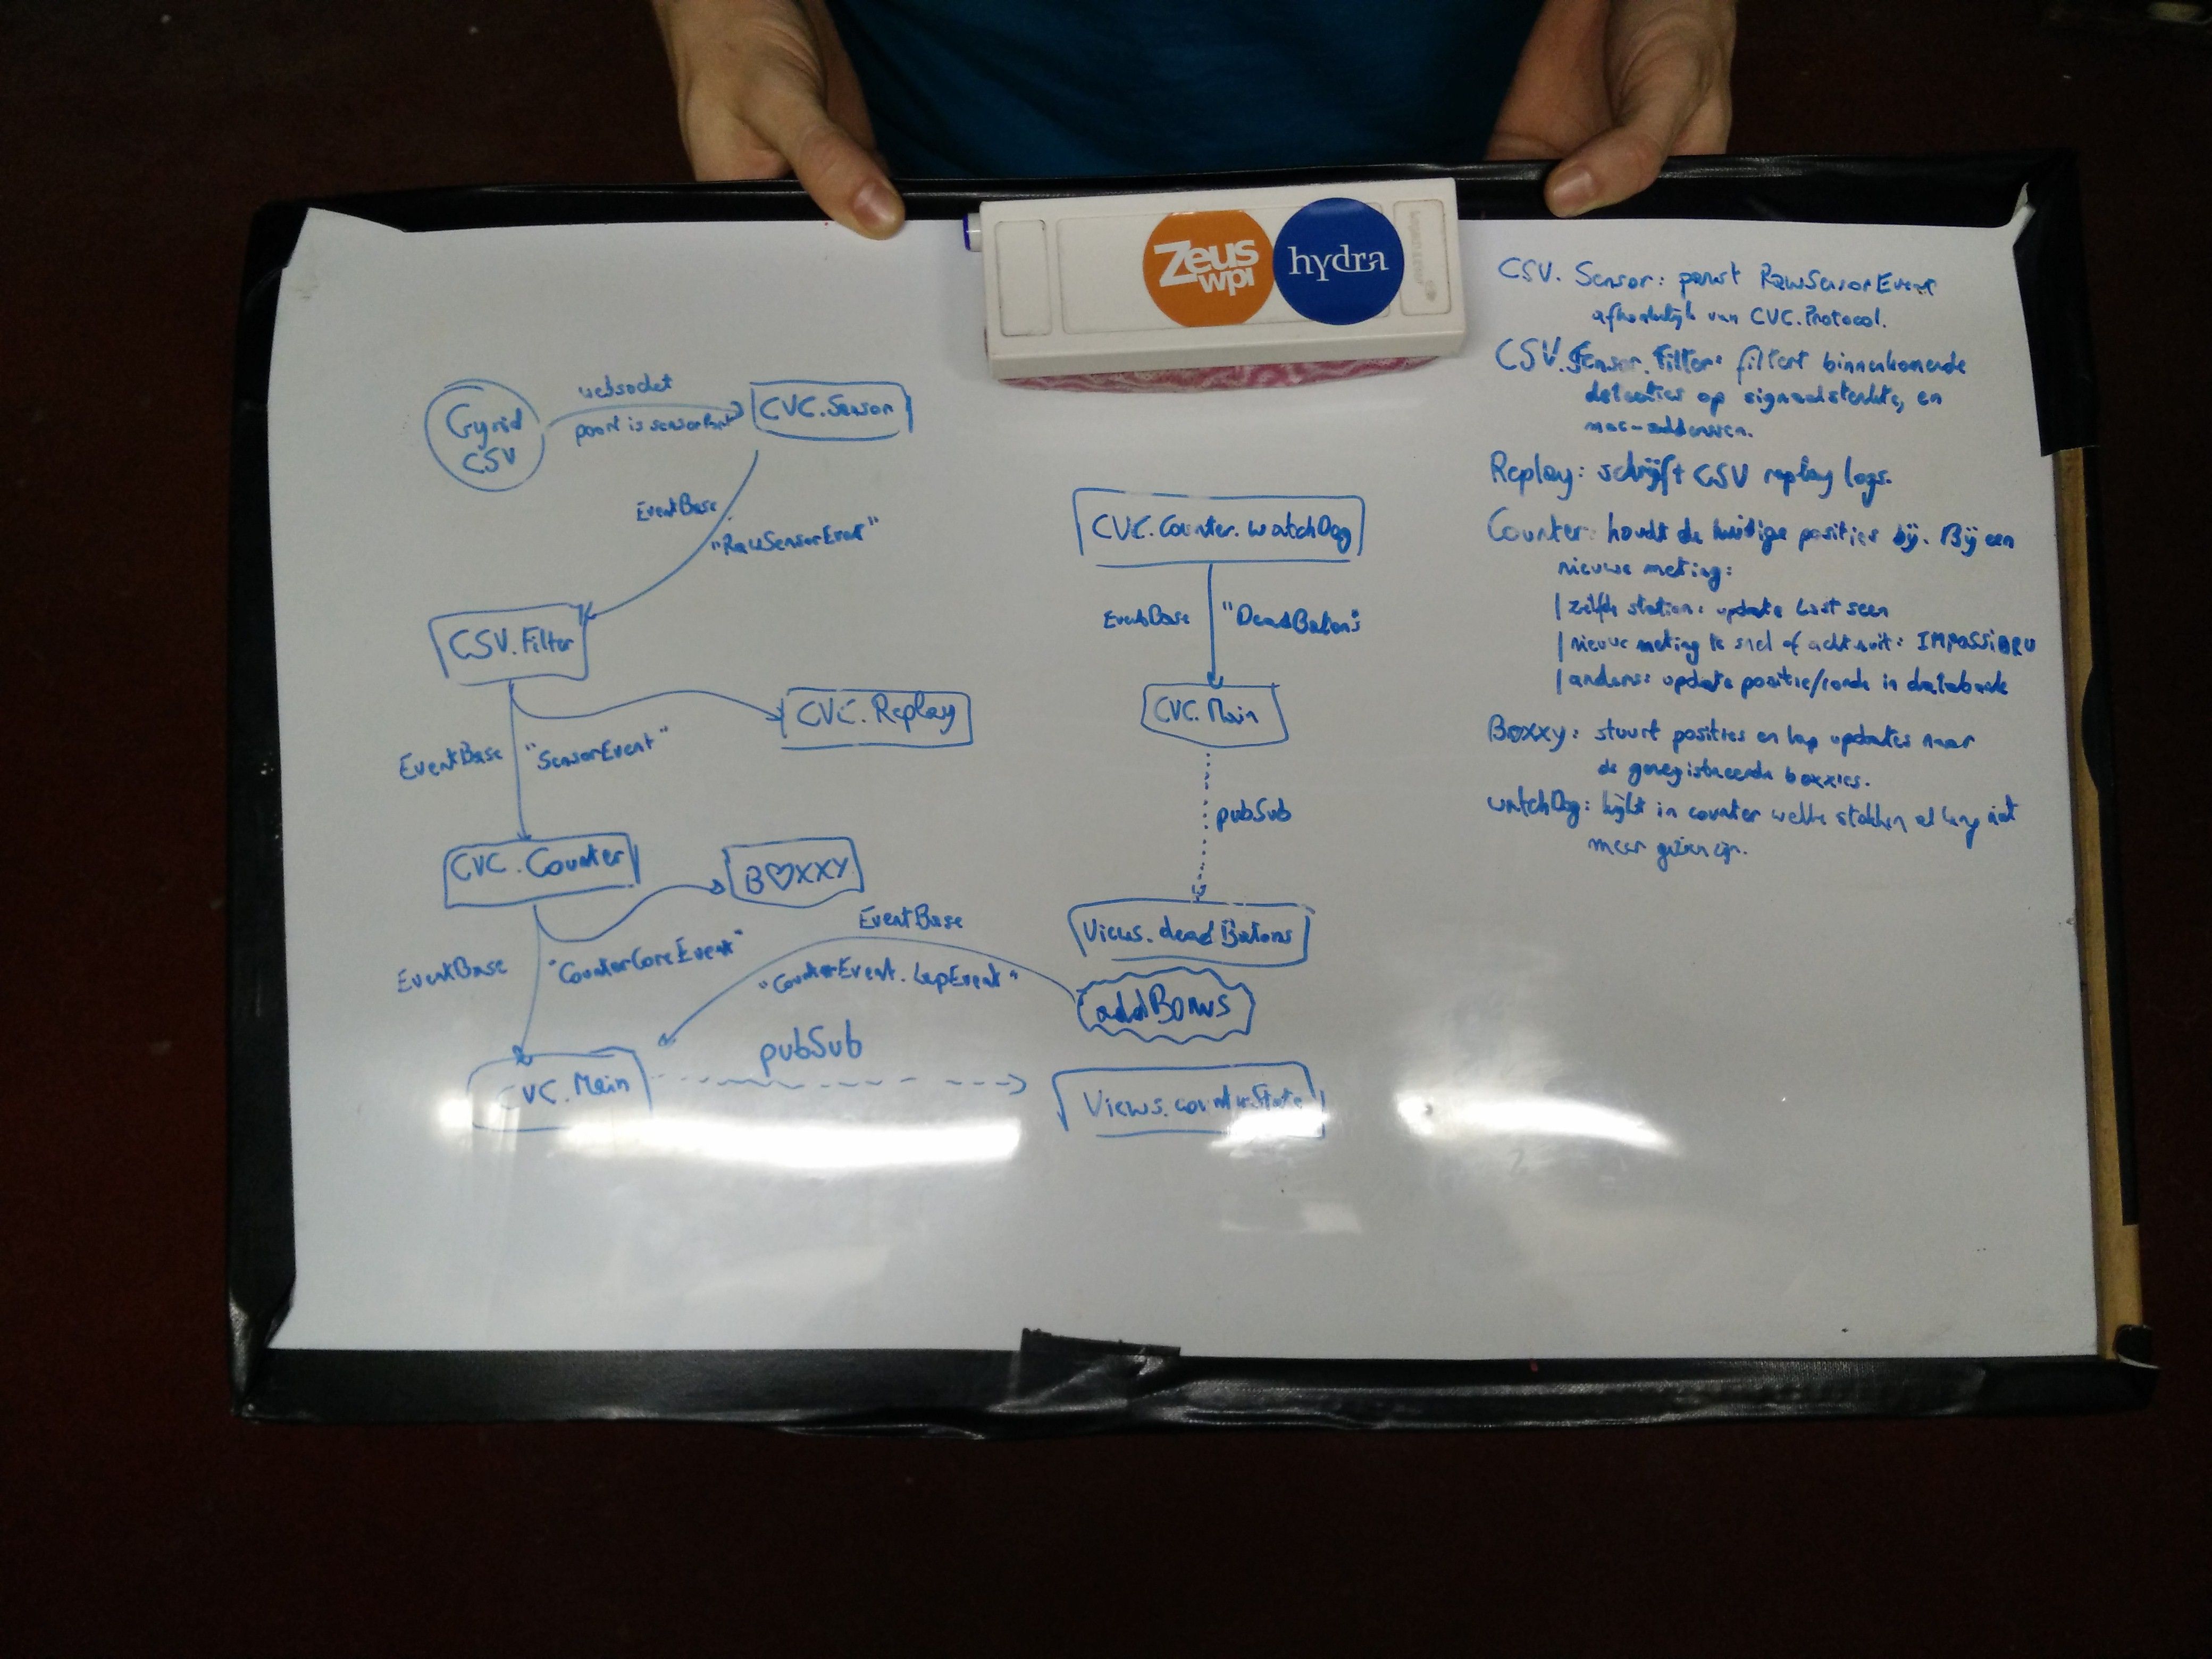 Zeus
wpi
hydra
Gyrid
CSV
websocket
poort is sensorPort
CVC.Sensor
EventBase
"RawSensorEvent"
CSV.Filter
CVC.Replay
EventBase
"SensorEvent"
CVC.Counter
B♡XXY
EventBase
"CounterCoreEvent"
EventBase
"CounterEvent.LapEvent"
CVC.Main
pubSub
CVC.Counter.watchDog
EventBase
"DeadBatons
CVC.Main
pubSub
Views.deadBatons
addBonus
Views.counterState
CSV. Sensor: parset RawSensorEvent
afhankelijk van CVC.Protocol.
CSV.Sensor.Filter: filtert binnenkomende
detecties op signaalsterkte, en
mac-addressen.
Replay: schrijft CSV replay logs.
Counter: houdt de huidige posities bij. Bij een
nieuwe meting:
| zelfde station: update last seen
| nieuwe meting te snel of achteruit: IMPOSSIBRU
| anders: update positie/ronde in databank
Boxxy: stuurt posities en lap updates naar
de geregistreerde boxxies.
watchDog: kijkt in counter welke stokken al lang niet
meer gezien zijn.